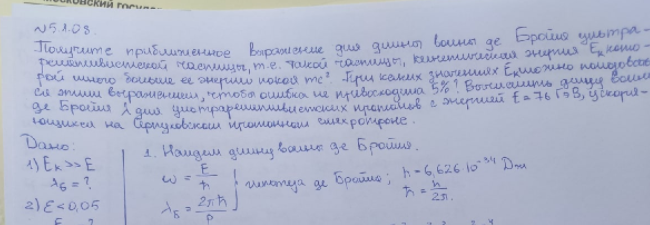 МОСКОВСКИЙ ГОСУДА
№5.1.08.
Получите приближенное выражение для длины волны де Бройля ультра-
релятивистской частицы, т.е. такой частицы, кинетическая энергия Eк кото-
рой много больше ее энергии покоя mc². При каких значениях Eк можно пользовать-
ся этим выражением, чтобы ошибка не превосходила 5%? Вычислить длину волны
де Бройля λ для ультрарелятивистских протонов с энергией E = 76 ГэВ, ускоря-
ющихся на Серпуховском протонном синхротроне.
Дано:
1. Найдем длину волны де Бройля.
1) Eк >> E
λБ = ?
2) ε < 0,05
ω = E/ħ
λБ = 2πħ/p
} гипотеза де Бройля; h = 6,626·10⁻³⁴ Дж
ħ = h/2π.